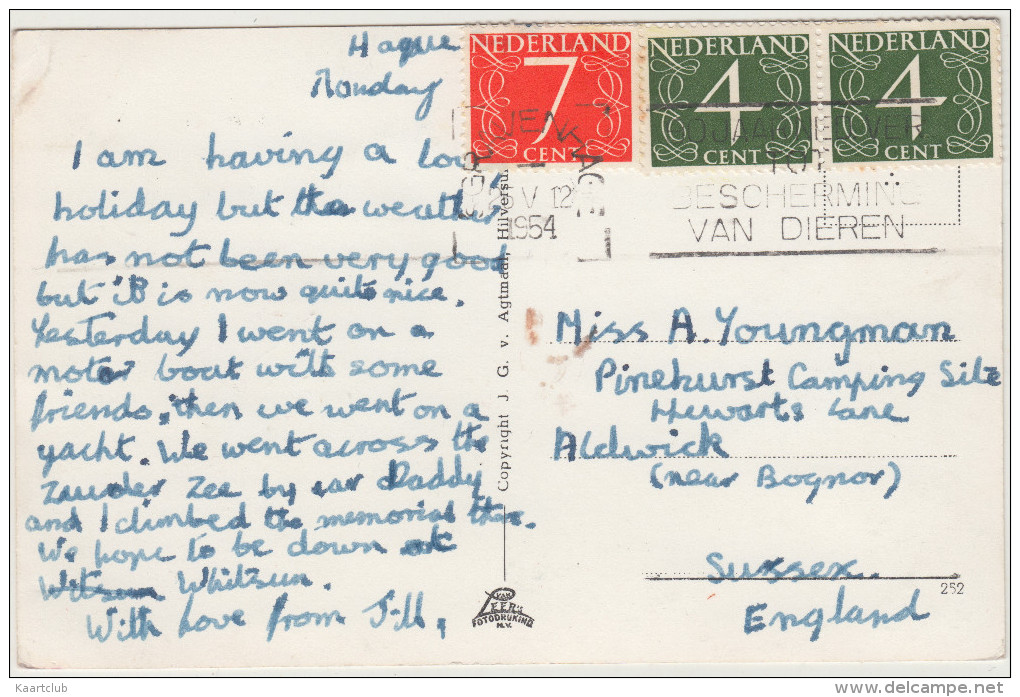 Hague
Monday
I am having a lov
holiday but the weather
has not been very good
but it is now quite nice.
Yesterday I went on a
motor boat with some
friends, then we went on a
yacht. We went across the
Zauder Zee by car Daddy
and I climbed the memorial there.
We hope to be down at
Witsun Whitsun.
With Love from Jill,
NEDERLAND
7
CENT
NEDERLAND
4
CENT
NEDERLAND
4
CENT
V 12
1954
TOT
BESCHERMING
VAN DIEREN
Copyright J. G. v. Agtmaal, Hilversu
Miss A. Youngman
Pinehurst Camping Site
Hewarts Lane
Aldwick
(near Bognor)
Sussex.
England
252
VAN
LEER'S
FOTODRUKIND.
N.V.
Kaartclub
www.delcampe.net